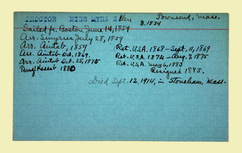 PROCTOR MISS MYRA A. Townsend, Mass.
B. 1834
Sailed fr. Boston June 14, 1859
Arr. Smyrna July 28, 1859
Arr. Aintab, 1859 Ret. U.S.A. 1868 - Sept. 11, 1869
Arr. Aintab Oct. 1869, Ret. U.S.A. 1874 - Aug. 7, 1875
Arr. Aintab Oct. 25, 1875 Ret. U.S.A. May 6, 1883
1880 Resigned 1885.
Died Sept. 12, 1914, in Stoneham, Mass.